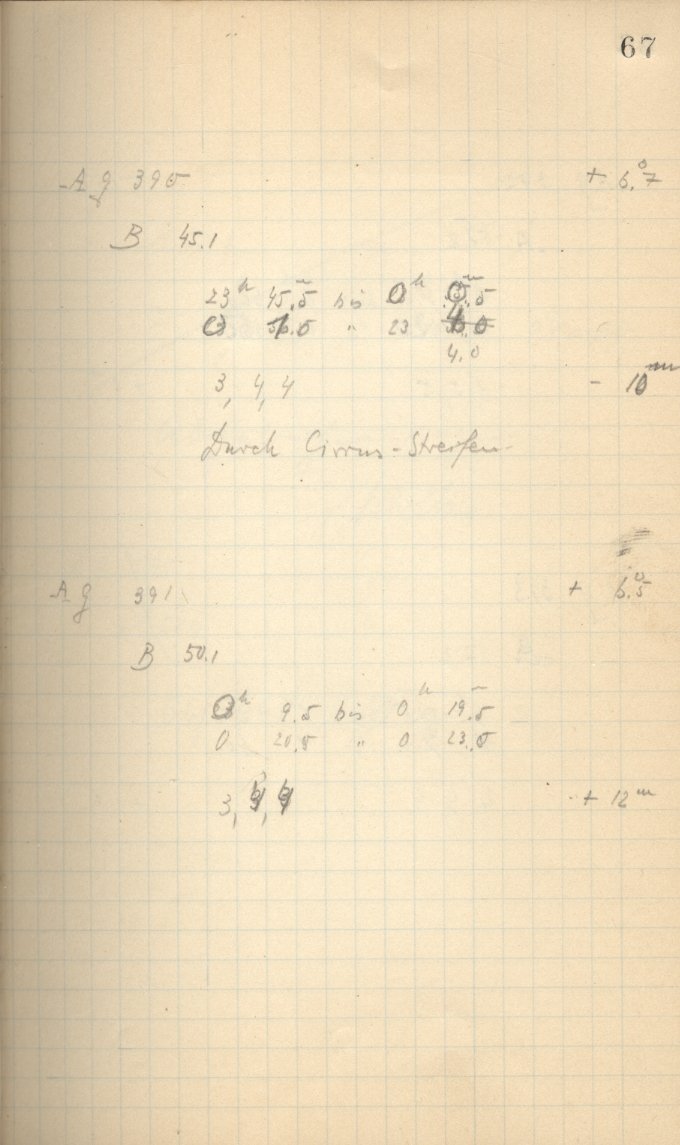 67
Ag 390 + 6.°7
B 45.1
23h 45.m5 bis 0h 0.m5
0 1.0 " 23
4.0
3, 4, 4 - 10m
Durch Cirrus-Streifen
Ag 391 + 6.°5
B 50.1
0h 9.5 bis 0h 19.m5
0 20.5 " 0 23.0
3, + 12m